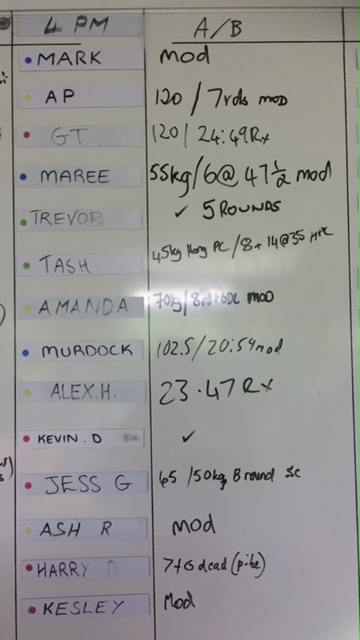 4 PM A/B
MARK mod
AP 120 / 7rds mod
GT 120 / 24:49 Rx
MAREE 55kg/6@ 47½ mod
TREVOR ✓ 5 ROUNDS
TASH 45kg Hang PC / 8+14@35
AMANDA 70kg/8 mod
MURDOCK 102.5/20:54 mod
ALEX.H. 23.47 Rx
KEVIN.D ✓
JESS G 65 /50kg 8 round Sc
ASH R mod
HARRY 7+6 dead (pike)
KESLEY Mod